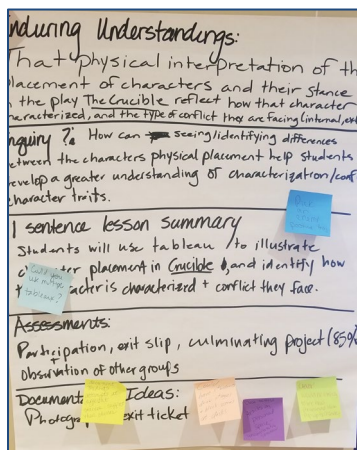 nduring Understandings:
That physical interpretation of th
lacement of characters and their stance
n the play The Crucible reflect how that character
haracterized, and the type of conflict they are facing (internal, ext
nquiry ?: How can seeing/identifying differences
etween the characters physical placement help students
evelop a greater understanding of characterization/conf
haracter traits.
1 sentence lesson summary
Students will use tableau to illustrate
placement in Crucible and identify how
acter is characterized + conflict they face.
Could you
use
tableau?
Assessments:
Participation, exit slip, culminating project (85%
+
observation of other groups
Document Ideas:
Photograp exit ticket